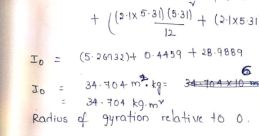 + ((2.1×5.31)(5.31)² / 12 + (2.1×5.31
I₀ = (5.26932) + 0.4459 + 28.9889
6
I₀ = 34.704 m².kg = 34.704 × 10
= 34.704 kg.m²
Radius of gyration relative to O.